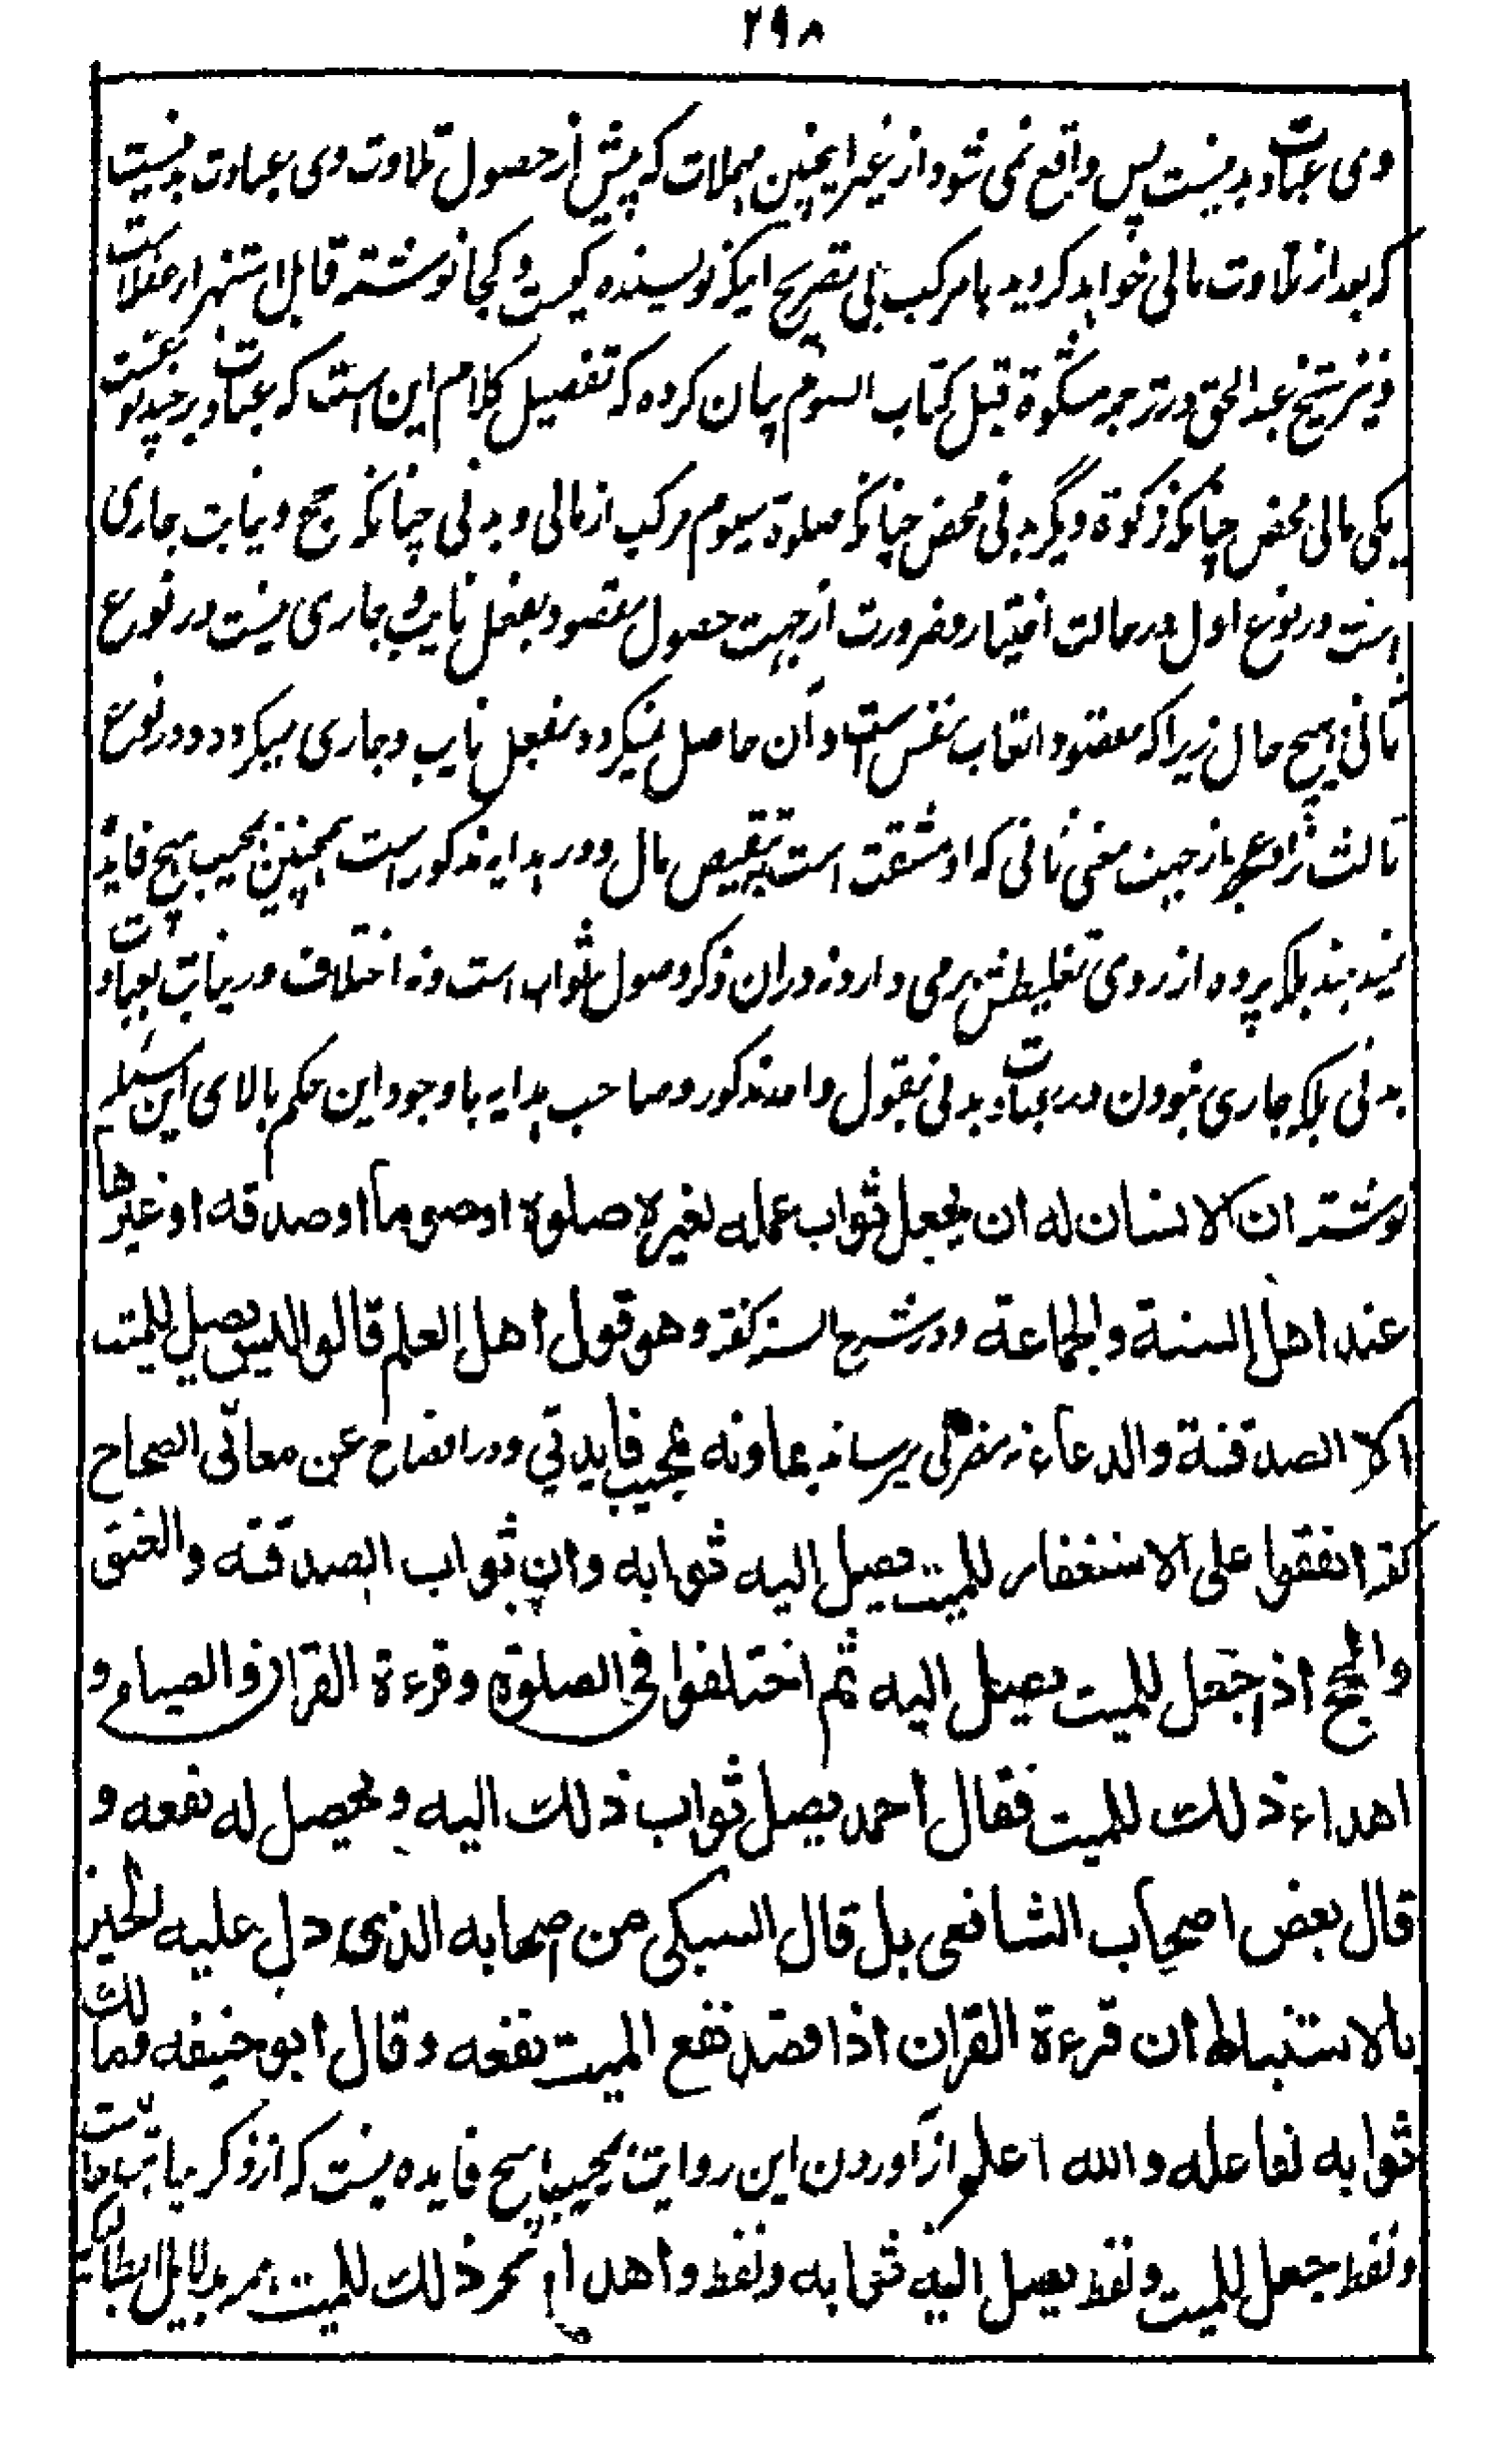 ۲۹۸
وی عبادت بدنیست پس واقع نمی شود از غیر اینچنین مهملات که پیش از حصول تلاوت وی عبادت بدنیست
که بعد از تلاوت مالی خواهد کردید یا مرکب بی تصریح اینکه نویسنده کیست و کجا نوشته قابل استهزار عقلاست
و نیز شیخ عبد الحق در ترجمه مشکوة قبل کتاب الصوم بیان کرده که تفصیل کلام این است که عبادت بر چند نوعست
یکی مالی محض چنانکه زکوة و دیگر بدنی محض چنانکه صلوة سیوم مرکب از مالی و بدنی چنانکه حج و نیابت جاری
است در نوع اول در حالت اختیار و ضرورت از جهت حصول مقصود بفعل نایب و جاری نیست در نوع
ثانی بهیچ حال زیرا که مقصود اتعاب نفس است و آن حاصل نمیکردد بفعل نایب و جاری میکردد در نوع
ثالث نزد عجز از جهت معنی ثانی که او مشقت است بتنقیص مال و در هدایه مذکور است همچنین بمجیب هیچ فایده
نمیدهد بلکه پرده از روی تغلیطش برمی دارد نه دران ذکر وصول ثواب است و نه اختلاف در نیابت بعبادت
بدنی بلکه جاری نبودن در عبادت بدنی بقول واحد مذکور و صاحب هدایه باوجود این حکم بالای این مسئله
نوشته ان الانسان له ان یجعل ثواب عمله لغیره صلوة او صوما او صدقه او غیرها
عند اهل السنة والجماعة و در شرح السنه کفته و هو قول اهل العلم قالوا لیس یصل للمیت
الا الصدقة والدعاء نه نفرتی میرساند بما و نه بمجیب فایدتی و در افضاح عن معانی الصحاح
کفته اتفقوا علی الاستغفار للمیت یصل الیه ثوابه وان ثواب الصدقة والعتق
والحج اذا جعل للمیت یصل الیه ثم اختلفوا فی الصلوة وقرءة القران والصیام و
اهداء ذلك للمیت فقال احمد یصل ثواب ذلك الیه و یحصل له نفعه و
قال بعض اصحاب الشافعی بل قال السبکی من اصحابه الذی دل علیه الخبر
بالاستنباط ان قرءة القران اذا قصد نفع المیت نفعه وقال ابو حنیفه ومالك
ثوابه لفاعله والله اعلم از آوردن این روایت بمجیب هیچ فایده نیست که از ذکر نیابت
ولفظ جعل للمیت ولفظ یصل الیه ثوابه ولفظ واهداء ذلك للمیت